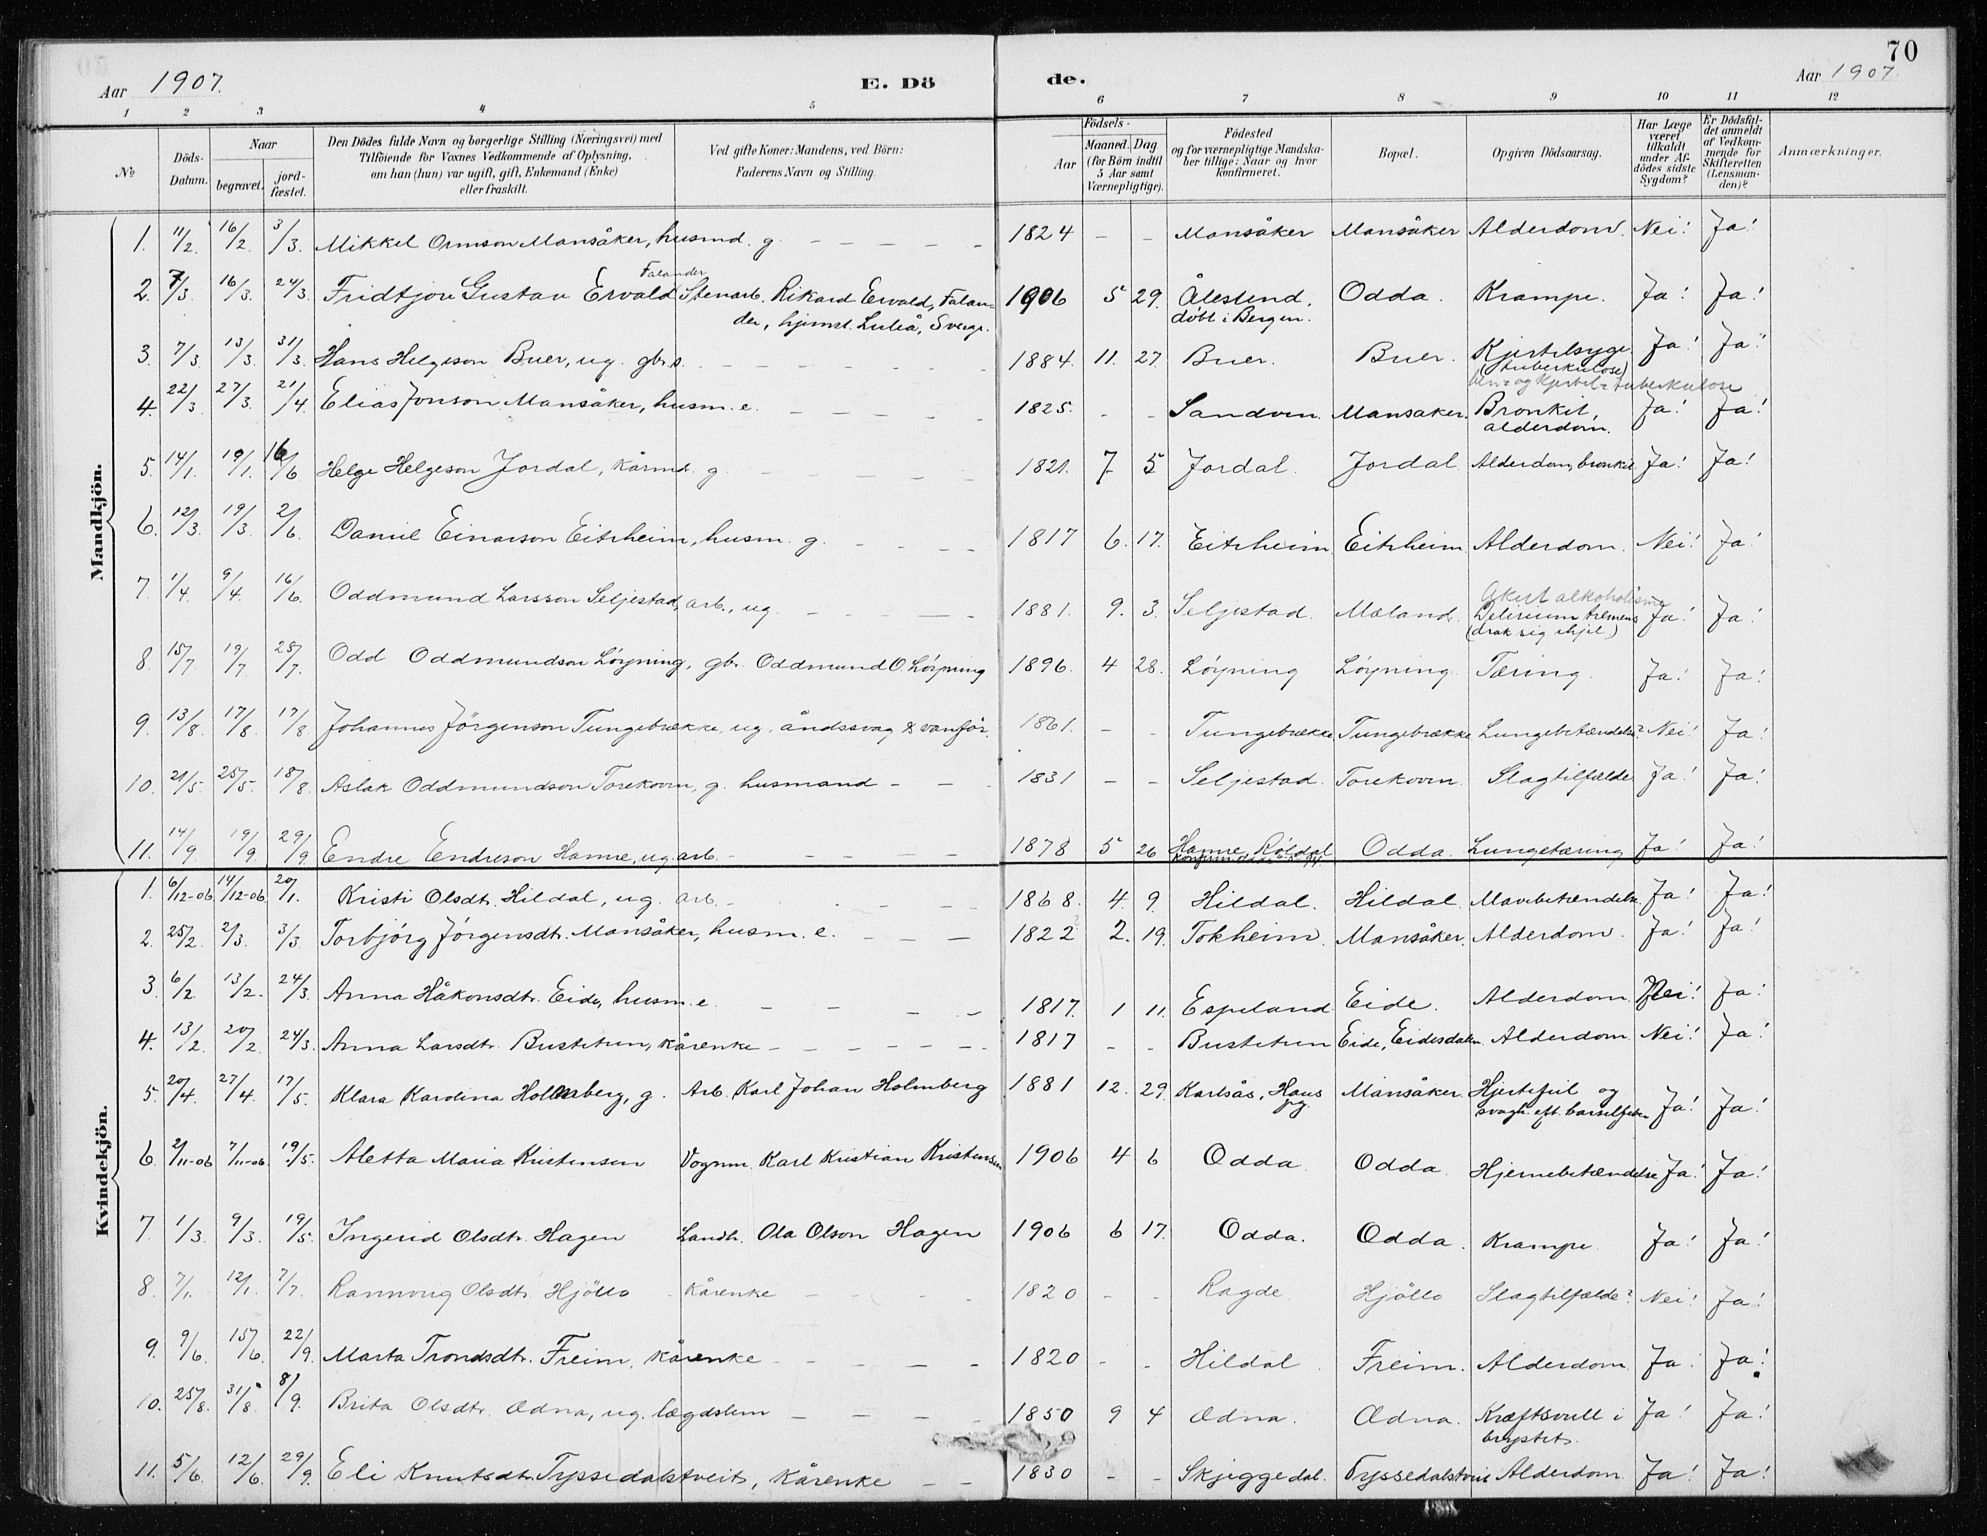 70
Aar 1907. E. Dö de. Aar 1907.
1 2 3 4 5 6 7 8 9 10 11 12
No
Döds-Datum.
Naar
begravet.
jord-fæstet.
Den Dödes fulde Navn og borgerlige Stilling (Næringsvei) med
Tilföiende for Voxnes Vedkommende af Oplysning,
om han (hun) var ugift, gift, Enkemand (Enke)
eller fraskilt.
Ved gifte Koner: Mandens, ved Börn:
Faderens Navn og Stilling.
Födsels-
Aar
Maaned. Dag
(for Börn indtil
5 Aar samt
Værnepligtige).
Födested
og for værnepligtige Mandska-
ber tillige: Naar og hvor
konfirmeret.
Bopæl.
Opgiven Dödsaarsag.
Har Læge
været
tilkaldt
under Af-
dödes sidste
Sygdom?
Er Dödsfal-
det anmeldt
af Vedkom-
mende for
Skifteretten
(Lensman-
den)?
Anmærkninger.
Mandkjön.
1. 11/2 16/2 3/3. Mikkel Ormson Mansåker, husmd. g. – – – – 1824 – – Mansåker Mansåker Alderdom. Nei! Ja!
Falander
2. 7/3. 16/3. 24/3. Fridtjov Gustav Ervald Stenarb. Rikard Ervald, Falan- 1906 5 29. Ålesund, Odda. Krampe. Ja! Ja!
der, hjemst. Luleå, Sverge. döbt i Bergen.
3. 7/3 13/3. 31/3. Hans Helgeson Buer, ug. gbr.s. 1884. 11. 27. Buer. Buer. Kjertelsyge Ja! Ja!
(tuberkulose)
ben- og kjertel-tuberkulose
4. 22/3 27/3. 21/4. Elias Jonson Mansåker, husm. e. 1825. – – Sandven Mansåker. Bronkit, Ja! Ja!
alderdom.
5. 14/1. 19/1. 16/6 Helge Helgeson Jordal, kårmd. g 1821. 7. 5 Jordal. Jordal. Alderdom, bronkit. Ja! Ja!
6. 12/3. 19/3. 2/6. Daniel Einarson Eitrheim, husm. g. 1817 6. 17. Eitrheim Eitrheim Alderdom. Nei! Ja!
Akut alkoholisme
7. 1/4. 9/4. 16/6. Oddmund Larsson Seljestad, arb., ug. 1881. 9. 3. Seljestad. Mæland. Delirium tremens Ja! Ja!
(drak sig ihjel)
8. 15/7. 19/7. 25/7. Odd Oddmundson Löyning, gbr. Oddmund O. Löyning 1896. 4 28. Löyning Löyning. Tæring. Ja! Ja!
9. 13/8. 17/8. 17/8. Johannes Jörgenson Tungebrække, ug. åndssvag & vanför. 1861. – – Tungebrække Tungebrække. Lungebetændelse? Nei! Ja!
10. 21/5. 25/5. 18/8. Aslak Oddmundson Torekoven, g. husmand – – 1831 – – Seljestad. Torekoven. Slagtilfælde Ja! Ja!
11. 14/9 19/9. 29/9. Endre Endreson Hamre, ug. arb. – – 1878 5 26 Hamre, Röldal Odda. Lungetæring Ja! Ja!
Kvindekjön.
1. 6/12-06 14/12-06. 20/1. Kristi Olsdtr. Hildal, ug. arb. 1868. 4. 9. Hildal. Hildal. Mavebetændelse. Ja! Ja!
2. 25/2. 2/3. 3/3. Torbjörg Jörgensdtr. Mansåker, husm. e. 1822 2. 19. Tokheim. Mansåker. Alderdom. Ja! Ja!
3. 6/2 13/2. 24/3. Anna Håkonsdtr. Eide, husm. e. 1817. 1 11. Espeland Eide. Alderdom. Nei! Ja!
4. 13/2. 20/2. 24/3. Anna Larsdtr. Bustetun, kårenke – – 1817 – – Bustetun Eide, Eidesdalen. Alderdom. Nei! Ja!
5. 20/4. 27/4. 17/5. Klara Karolina Holmberg, g. Arb. Karl Johan Holmberg 1881 12. 29. Karlsås, Haus Mansåker. Hjertefeil og Ja! Ja!
pg. svagh. eft. barselfeber
6. 2/11-06 7/11-06. 19/5. Aletta Maria Kristensen Vognm. Karl Kristian Kristensen 1906 4 6 Odda Odda. Hjernebetændelse Ja! Ja!
7. 1/3. 9/3. 19/5. Ingerid Olsdtr. Hagen Landh. Ola Olson Hagen 1906 6 17. Odda. Odda. Krampe. Ja! Ja!
8. 7/1. 12/1. 7/7. Rannveig Olsdtr. Hjöllo kårenke 1820 – – Ragde. Hjöllo Slagtilfælde? Nei! Ja!
9. 9/6. 15/6. 22/9. Marta Trondsdtr. Freim, kårenke 1820 – – Hildal Freim. Alderdom. Ja Ja!
10. 25/8. 31/8. 8/9. Brita Olsdtr. Ædna, ug. lægdslem 1850 9 4 Ædna. Ædna. Kræftsvull i Ja! Ja!
brystet.
11. 5/6. 12/6. 29/9. Eli Knutsdtr. Tyssedalstveit, kårenke 1830 – – Skjeggedal. Tyssedalstveit Alderdom. Ja! Ja!